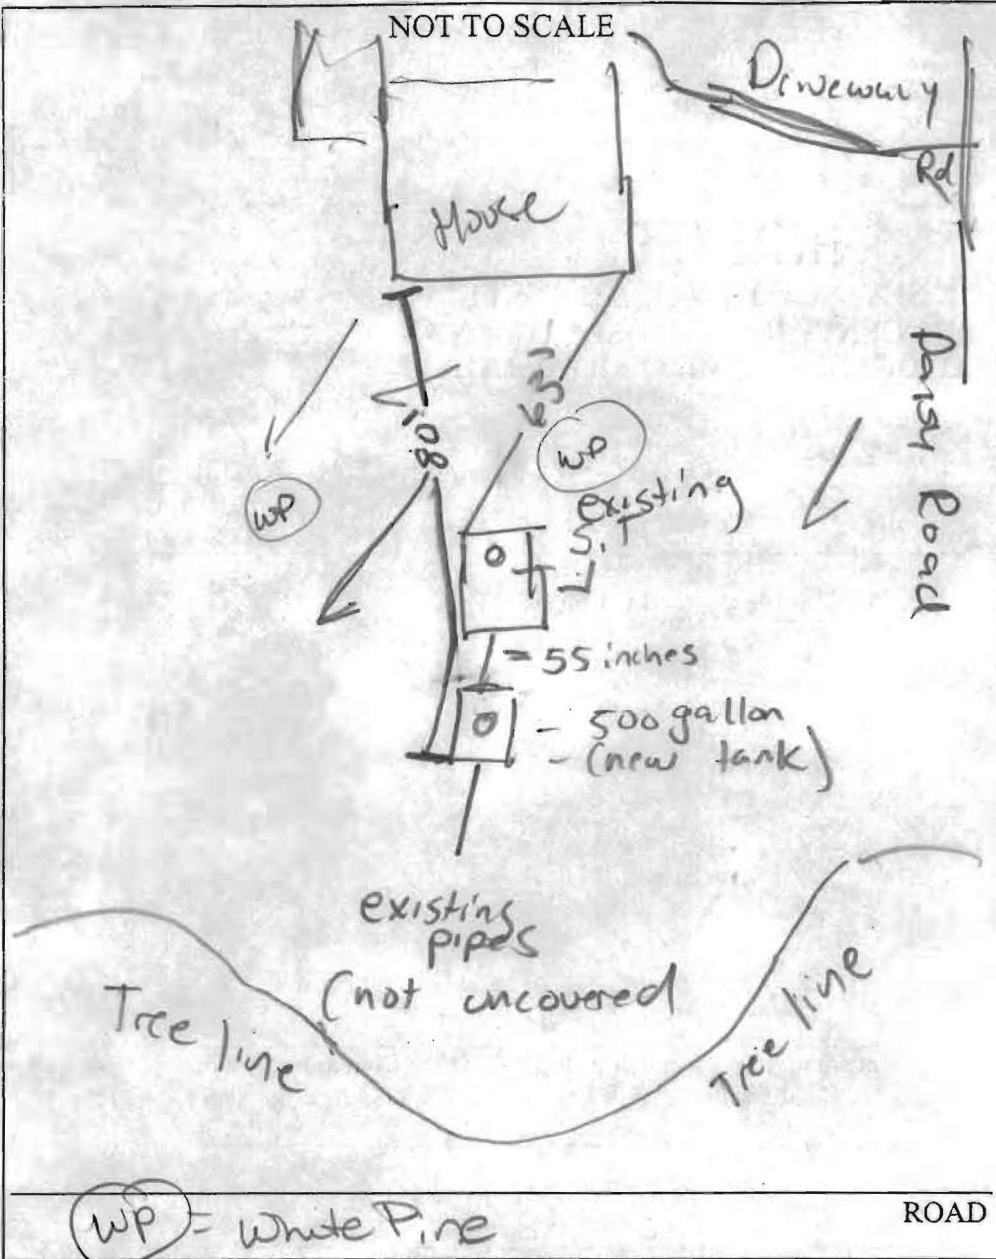 NOT TO SCALE
Driveway
Rd
House
Pansy Road
63'
80'
WP
WP
existing
S.T
= 55 inches
- 500 gallon
- (new tank)
existing
pipes
(not uncovered
Tree line
Tree line
ROAD
WP = White Pine